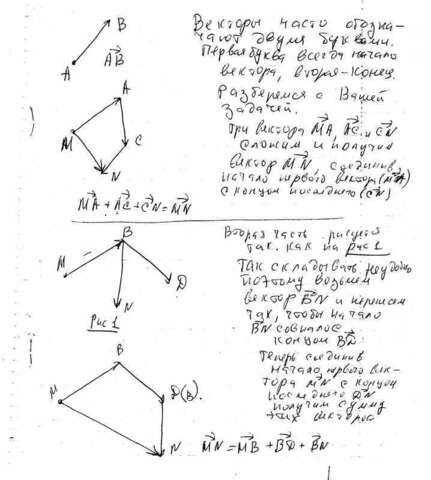 B
A
AB
Векторы часто обозна-
чают двумя буквами.
Первая буква всегда начало
вектора, вторая - конец.
Разберемся с Вашей
задачей.
A
M
C
N
Три вектора MA, AC и CN
сложим и получим
вектор MN соединив
начало первого вектора (MA)
с концом последнего (CN)
MA + AC + CN = MN
B
M
D
N
Рис 1
Вторая часть рисунок
так, как на рис 1
Так складывать неудобно
поэтому возьмем
вектор BN и перенесем
так, чтобы начало
BN совпало с
концом BD.
Теперь соединив
начало первого век-
тора MN с концом
последнего DN
получим сумму
этих векторов
B
M
D(B).
N
MN = MB + BD + BN